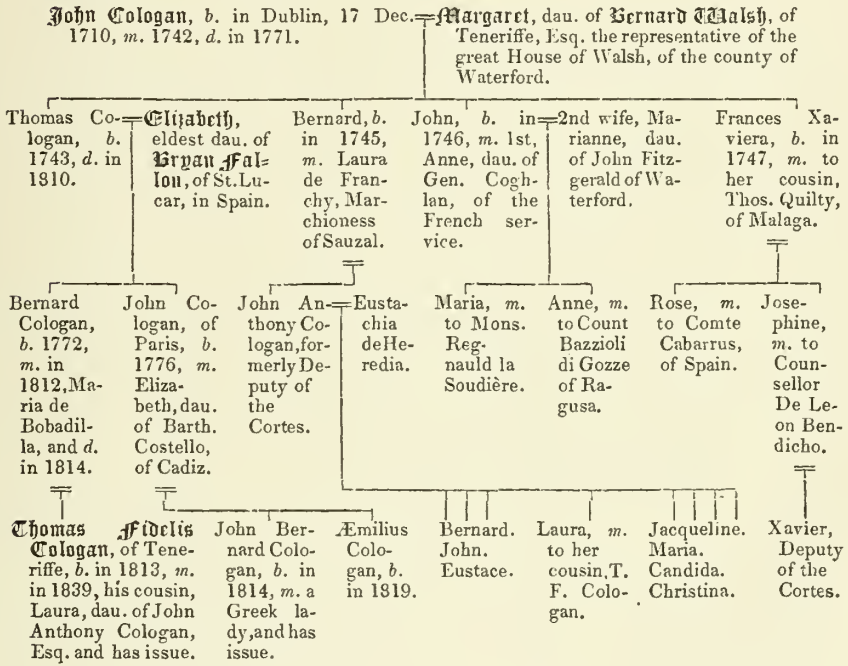 John Cologan, b. in Dublin, 17 Dec.
1710, m. 1742, d. in 1771.
Margaret, dau. of Bernard Walsh, of
Teneriffe, Esq. the representative of the
great House of Walsh, of the county of
Waterford.
Thomas Co-
logan, b.
1743, d. in
1810.
Elizabeth,
eldest dau. of
Bryan Fal-
lon, of St. Lu-
car, in Spain.
Bernard, b.
in 1745,
m. Laura
de Fran-
chy, Mar-
chioness
of Sauzal.
John, b. in
1746, m. 1st,
Anne, dau. of
Gen. Cogh-
lan, of the
French ser-
vice.
2nd wife, Ma-
rianne, dau.
of John Fitz-
gerald of Wa-
terford.
Frances Xa-
viera, b. in
1747, m. to
her cousin,
Thos. Quilty,
of Malaga.
Bernard
Cologan,
b. 1772,
m. in
1812, Ma-
ria de
Bobadil-
la, and d.
in 1814.
John Co-
logan, of
Paris, b.
1776, m.
Eliza-
beth, dau.
of Barth.
Costello,
of Cadiz.
John An-
thony Co-
logan, for-
merly De-
puty of
the
Cortes.
Eusta-
chia
de He-
redia.
Maria, m.
to Mons.
Reg-
nauld la
Soudière.
Anne, m.
to Count
Bazzioli
di Gozze
of Ra-
gusa.
Rose, m.
to Comte
Cabarrus,
of Spain.
Jose-
phine,
m. to
Coun-
sellor
De Le-
on Ben-
dicho.
Thomas Fidelis
Cologan, of Tene-
riffe, b. in 1813, m.
in 1839, his cousin,
Laura, dau. of John
Anthony Cologan,
Esq. and has issue.
John Ber-
nard Colo-
gan, b. in
1814, m. a
Greek la-
dy, and has
issue.
Æmilius
Colo-
gan, b.
in 1819.
Bernard.
John.
Eustace.
Laura, m.
to her
cousin, T.
F. Colo-
gan.
Jacqueline.
Maria.
Candida.
Christina.
Xavier,
Deputy
of the
Cortes.